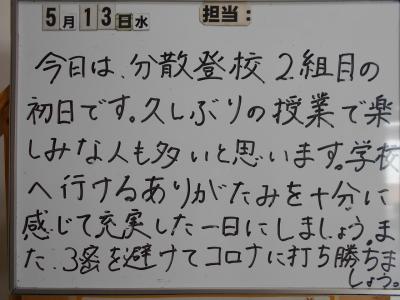 5月13日水 担当:
今日は、分散登校2組目の
初日です。久しぶりの授業で楽
しみな人も多いと思います。学校
へ行けるありがたみを十分に
感じて充実した一日にしましょう。ま
た、3蜜を避けてコロナに打ち勝ちま
しょう。